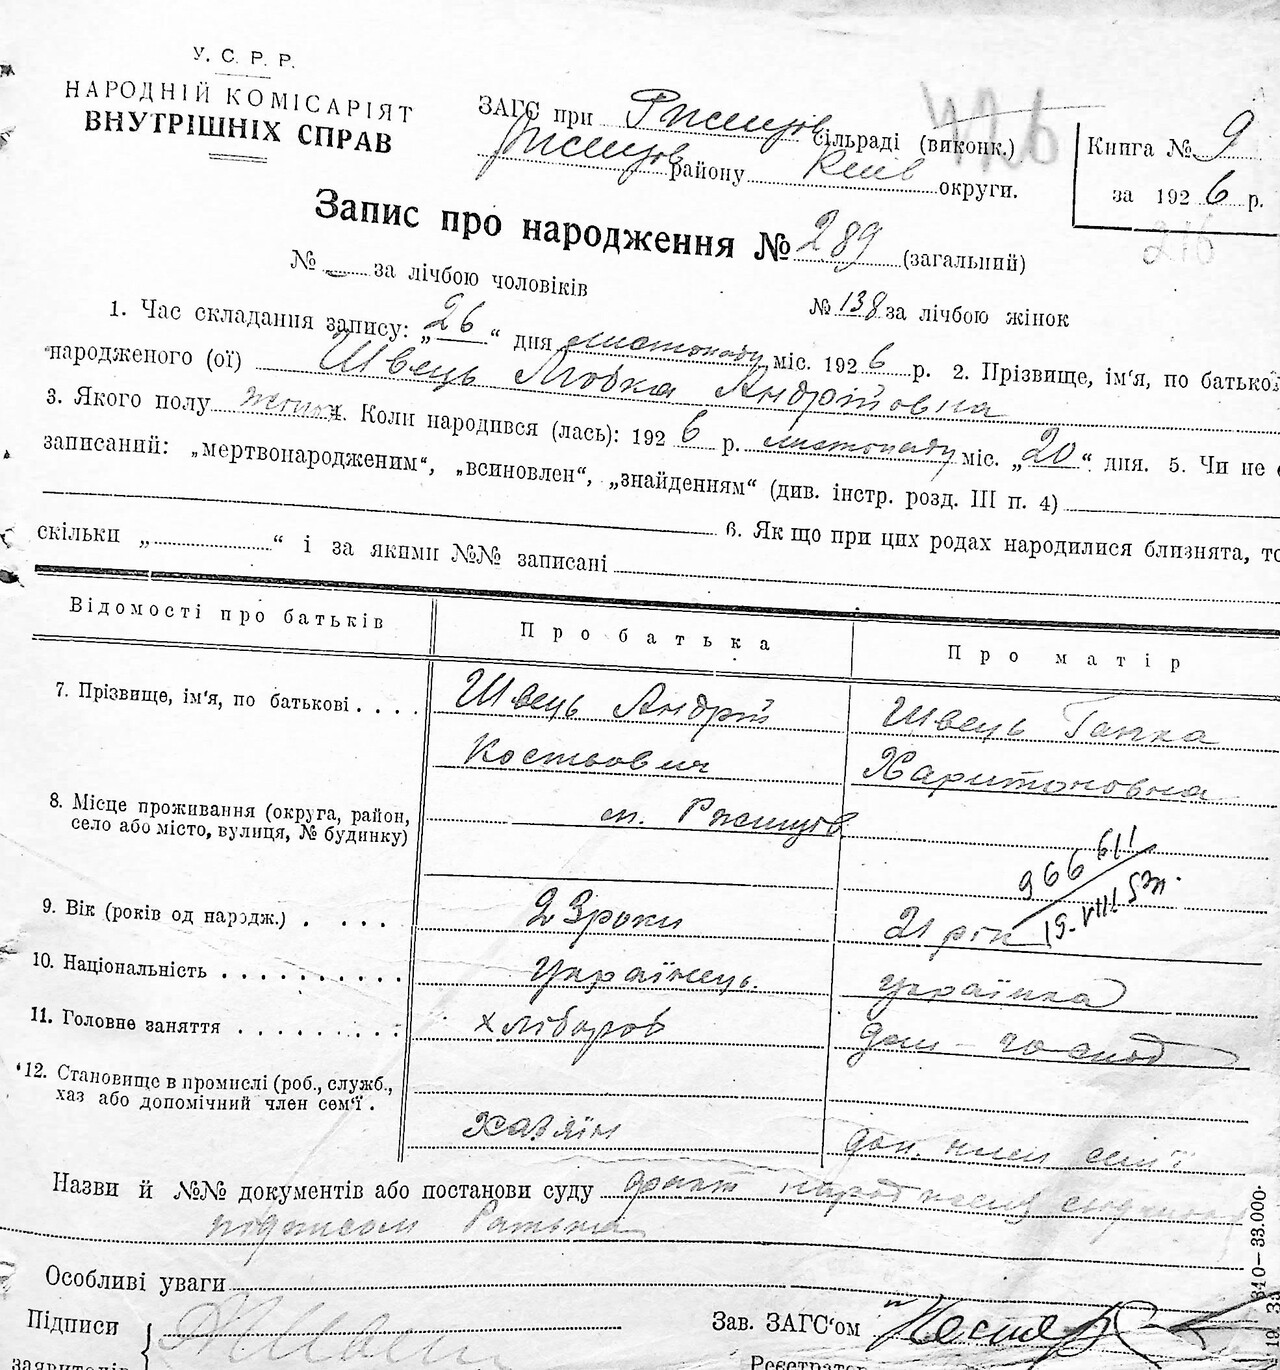 У. С. Р. Р.
НАРОДНІЙ КОМІСАРІЯТ
ВНУТРІШНІХ СПРАВ
ЗАГС при Ржищів сільраді (виконк.)
Ржищів району Київ округи.
Книга № 9
за 1926 р.
216
Запис про народження № 289 (загальний)
№ за лічбою чоловіків
№ 138 за лічбою жінок
1. Час складання запису: „26“ дня листопаду міс. 1926 р. 2. Прізвище, ім'я, по батькові
народженого (ої) Швець Андрійовна
3. Якого полу 4. Коли народився (лась): 1926 р. листопаду міс. „20“ дня. 5. Чи не є
записаний: „мертвонародженим“, „всиновлен“, „знайденням“ (див. інстр. розд. III п. 4)
6. Як що при цих родах народилися близнята, то
скільки „ “ і за якими №№ записані
Відомості про батьків
Про батька
Про матір
7. Прізвище, ім'я, по батькові . . . .
Швець Андрій
Швець Ганка
Костьович
Харитоновна
8. Місце проживання (округа, район,
село або місто, вулиця, № будинку)
м. Ржищів
966611
15.VIII 51
9. Вік (років од народж.) . . . .
23 роки
21 рік
10. Національність . . . . . . . . . .
Українець.
українка
11. Головне заняття . . . . . . . . .
хлібороб
дом-господ
12. Становище в промислі (роб., служб.,
хаз або допомічний член сем'ї .
хазяїн
доп. член сем'ї
Назви й №№ документів або постанови суду факт народження
підписом
Особливі уваги
Підписи
заявителів
Зав. ЗАГС'ом
Реєстратор
340—33.000.